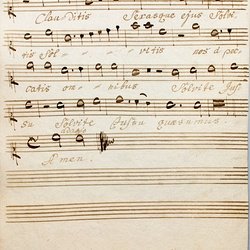 Clau ditis Serasque ejus Solvi
tis Sol - - - vitis nos a pec
catis om - - nibus Solvite Jus
su Solvite Jussu quæsumus
adagio
Amen.